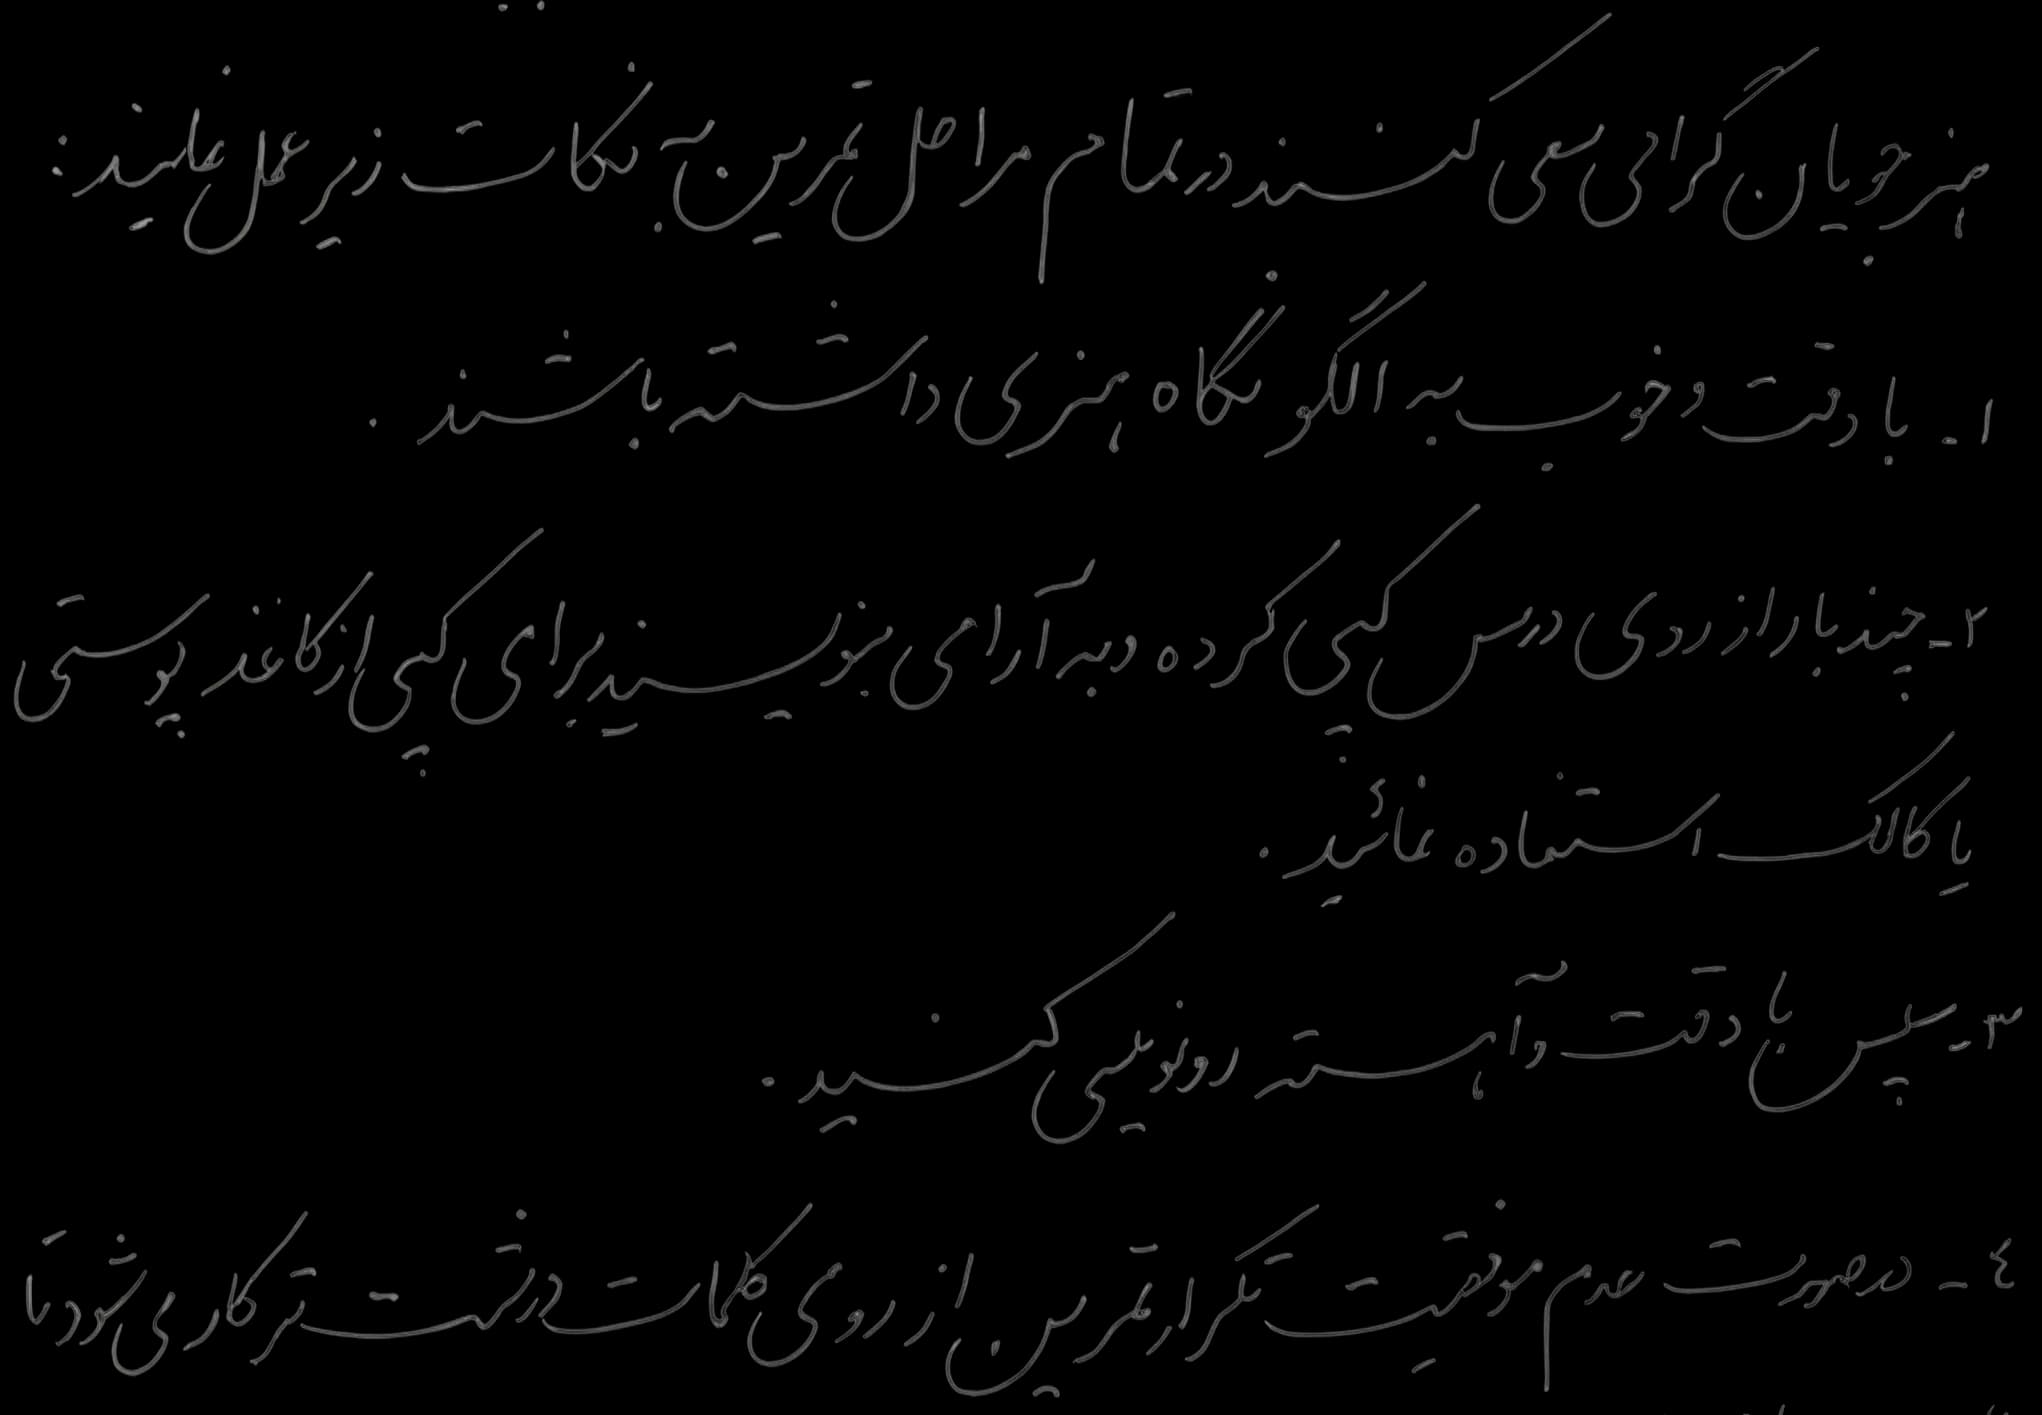 هنرجویان گرامی سعی کنند در تمام مراحل تمرین به نکات زیر عمل نمایند :
۱- با دقت و خوب به الگو نگاه هنری داشته باشند .
۲- چند بار از روی درس کپی کرده و به آرامی بنویسید برای کپی از کاغذ پوستی
یا کالک استفاده نمائید .
۳- سپس با دقت و آهسته رونویسی کنید .
٤- در صورت عدم موفقیت تکرار تمرین از روی کلمات درشت تر کار می شود تا